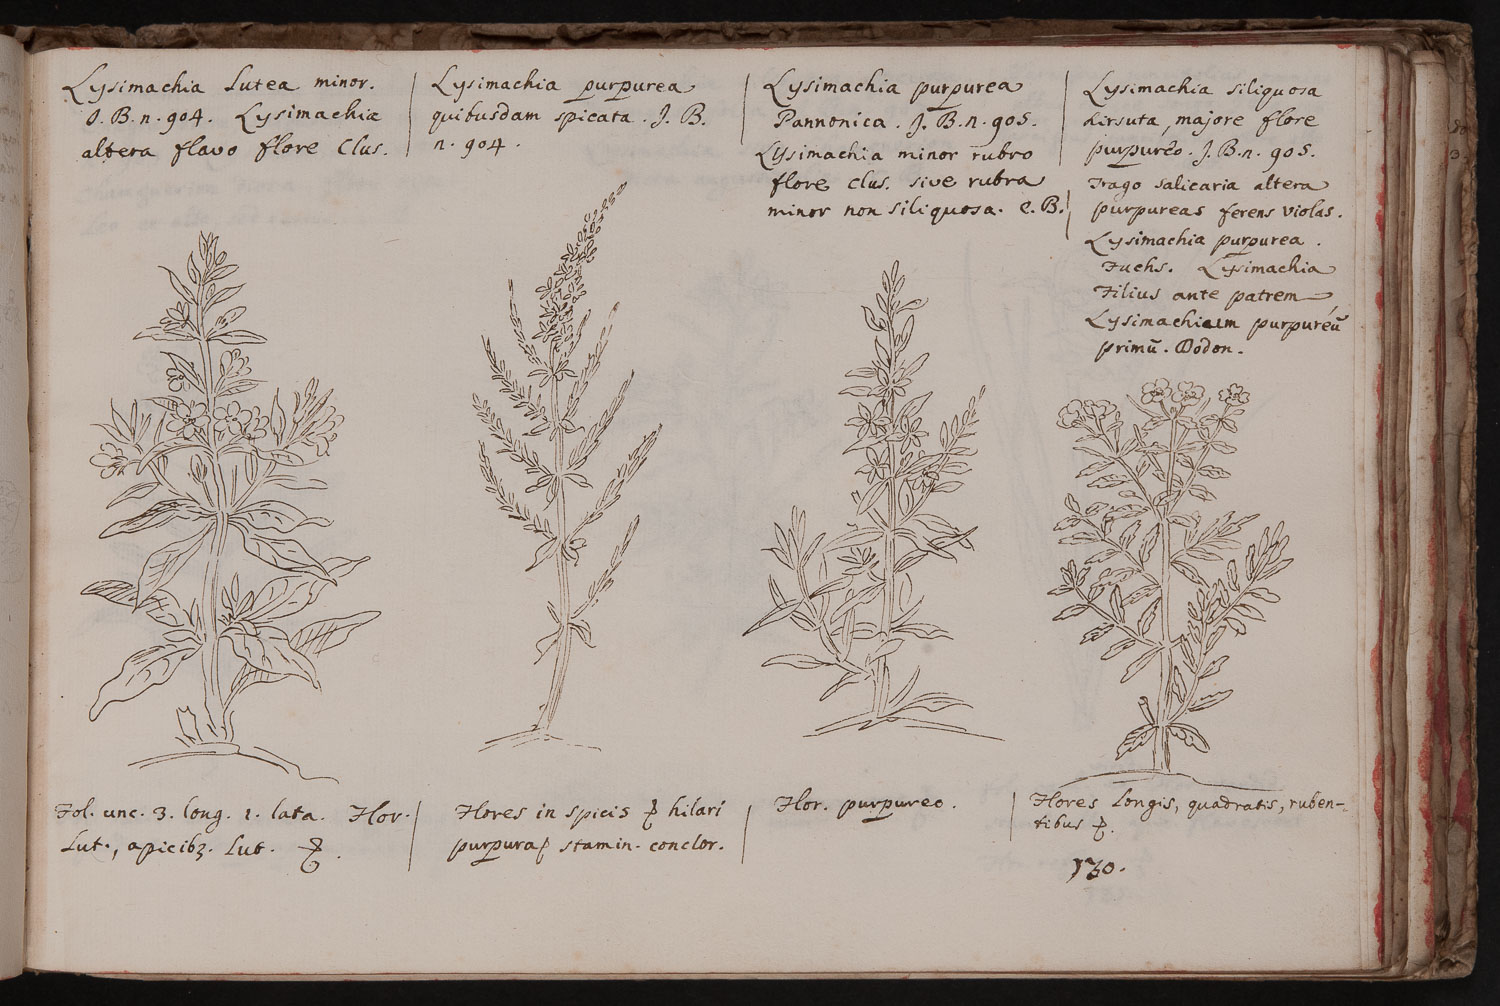 Lysimachia Lutea minor.
J. B. n. 904. Lysimachia
altera flavo flore Clus.
Lysimachia purpurea
quibusdam spicata. J. B.
n. 904.
Lysimachia purpurea
Pannonica. J. B. n. 905.
Lysimachia minor rubro
flore clus. sive rubra
minor non siliquosa. C. B.
Lysimachia siliquosa
hirsuta, majore flore
purpureo. J. B. n. 905.
Trago salicaria altera
purpureas ferens violas.
Lysimachia purpurea.
Fuchs. Lysimachia
Filius ante patrem
Lysimachium purpureū
primū. Dodon.
Fol. unc. 3. long. 1. lata. Flor.
Lut., apicibz. Lut.
Flores in spicis hilari
purpura stamin. conclor.
Flor. purpureo.
Flores Longis, quadratis, ruben-
tibus
130.